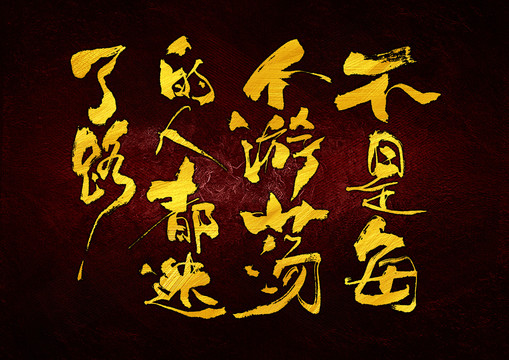 不是每
个游荡
的人都迷
了路